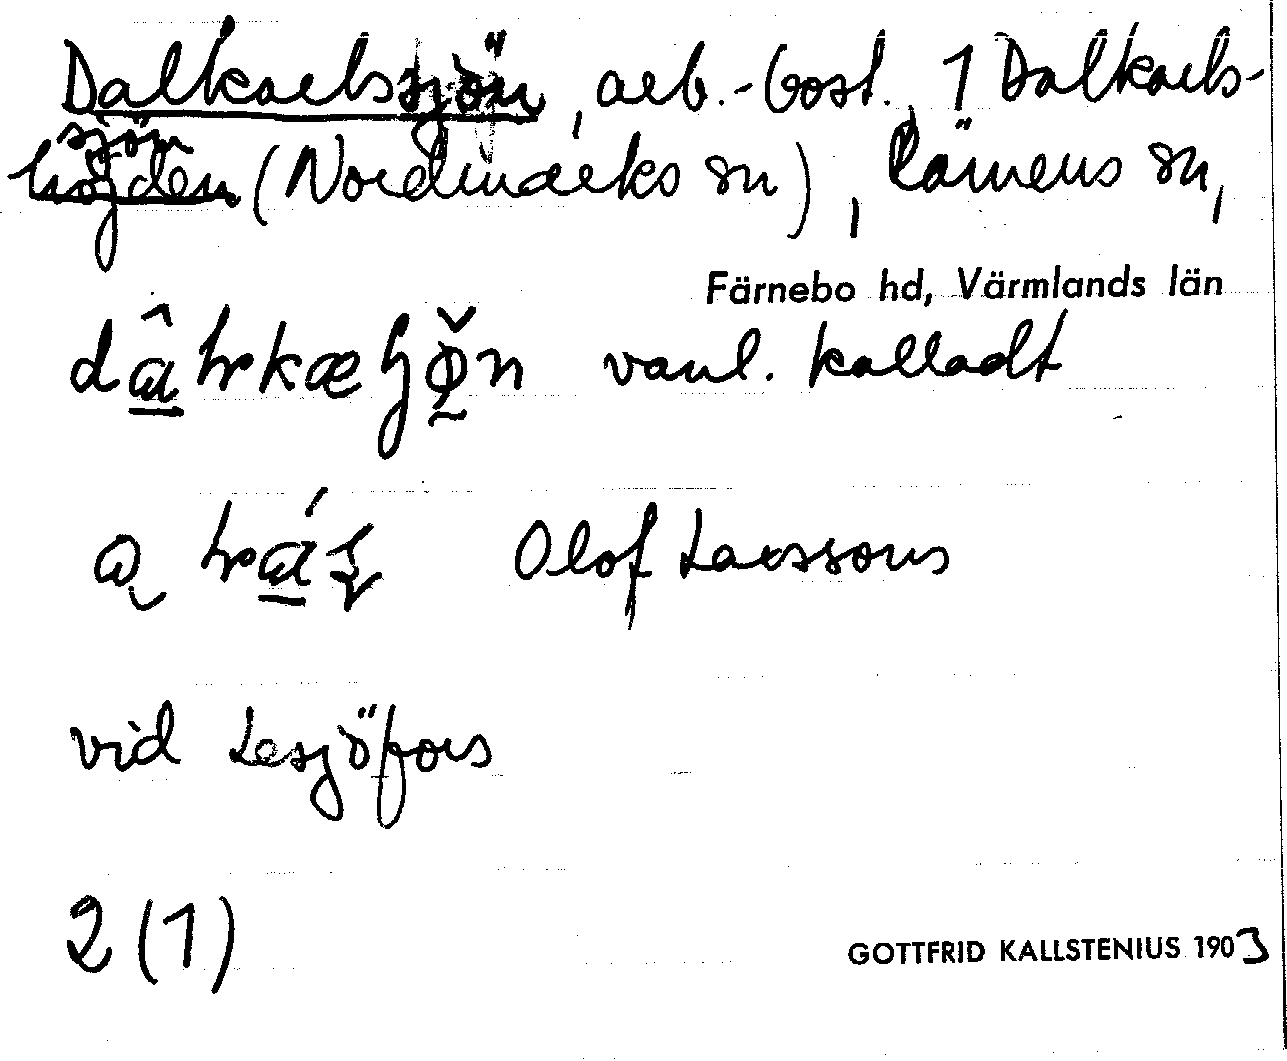 Dalkarlssjön, arb.-bost., 1 Dalkarls-
sjön
höjden (Nordmarks sn), Rämens sn,
Färnebo hd, Värmlands län
vanl. kalladt
Olof Larssons
vid Lesjöfors
2 (1)
GOTTFRID KALLSTENIUS 1903